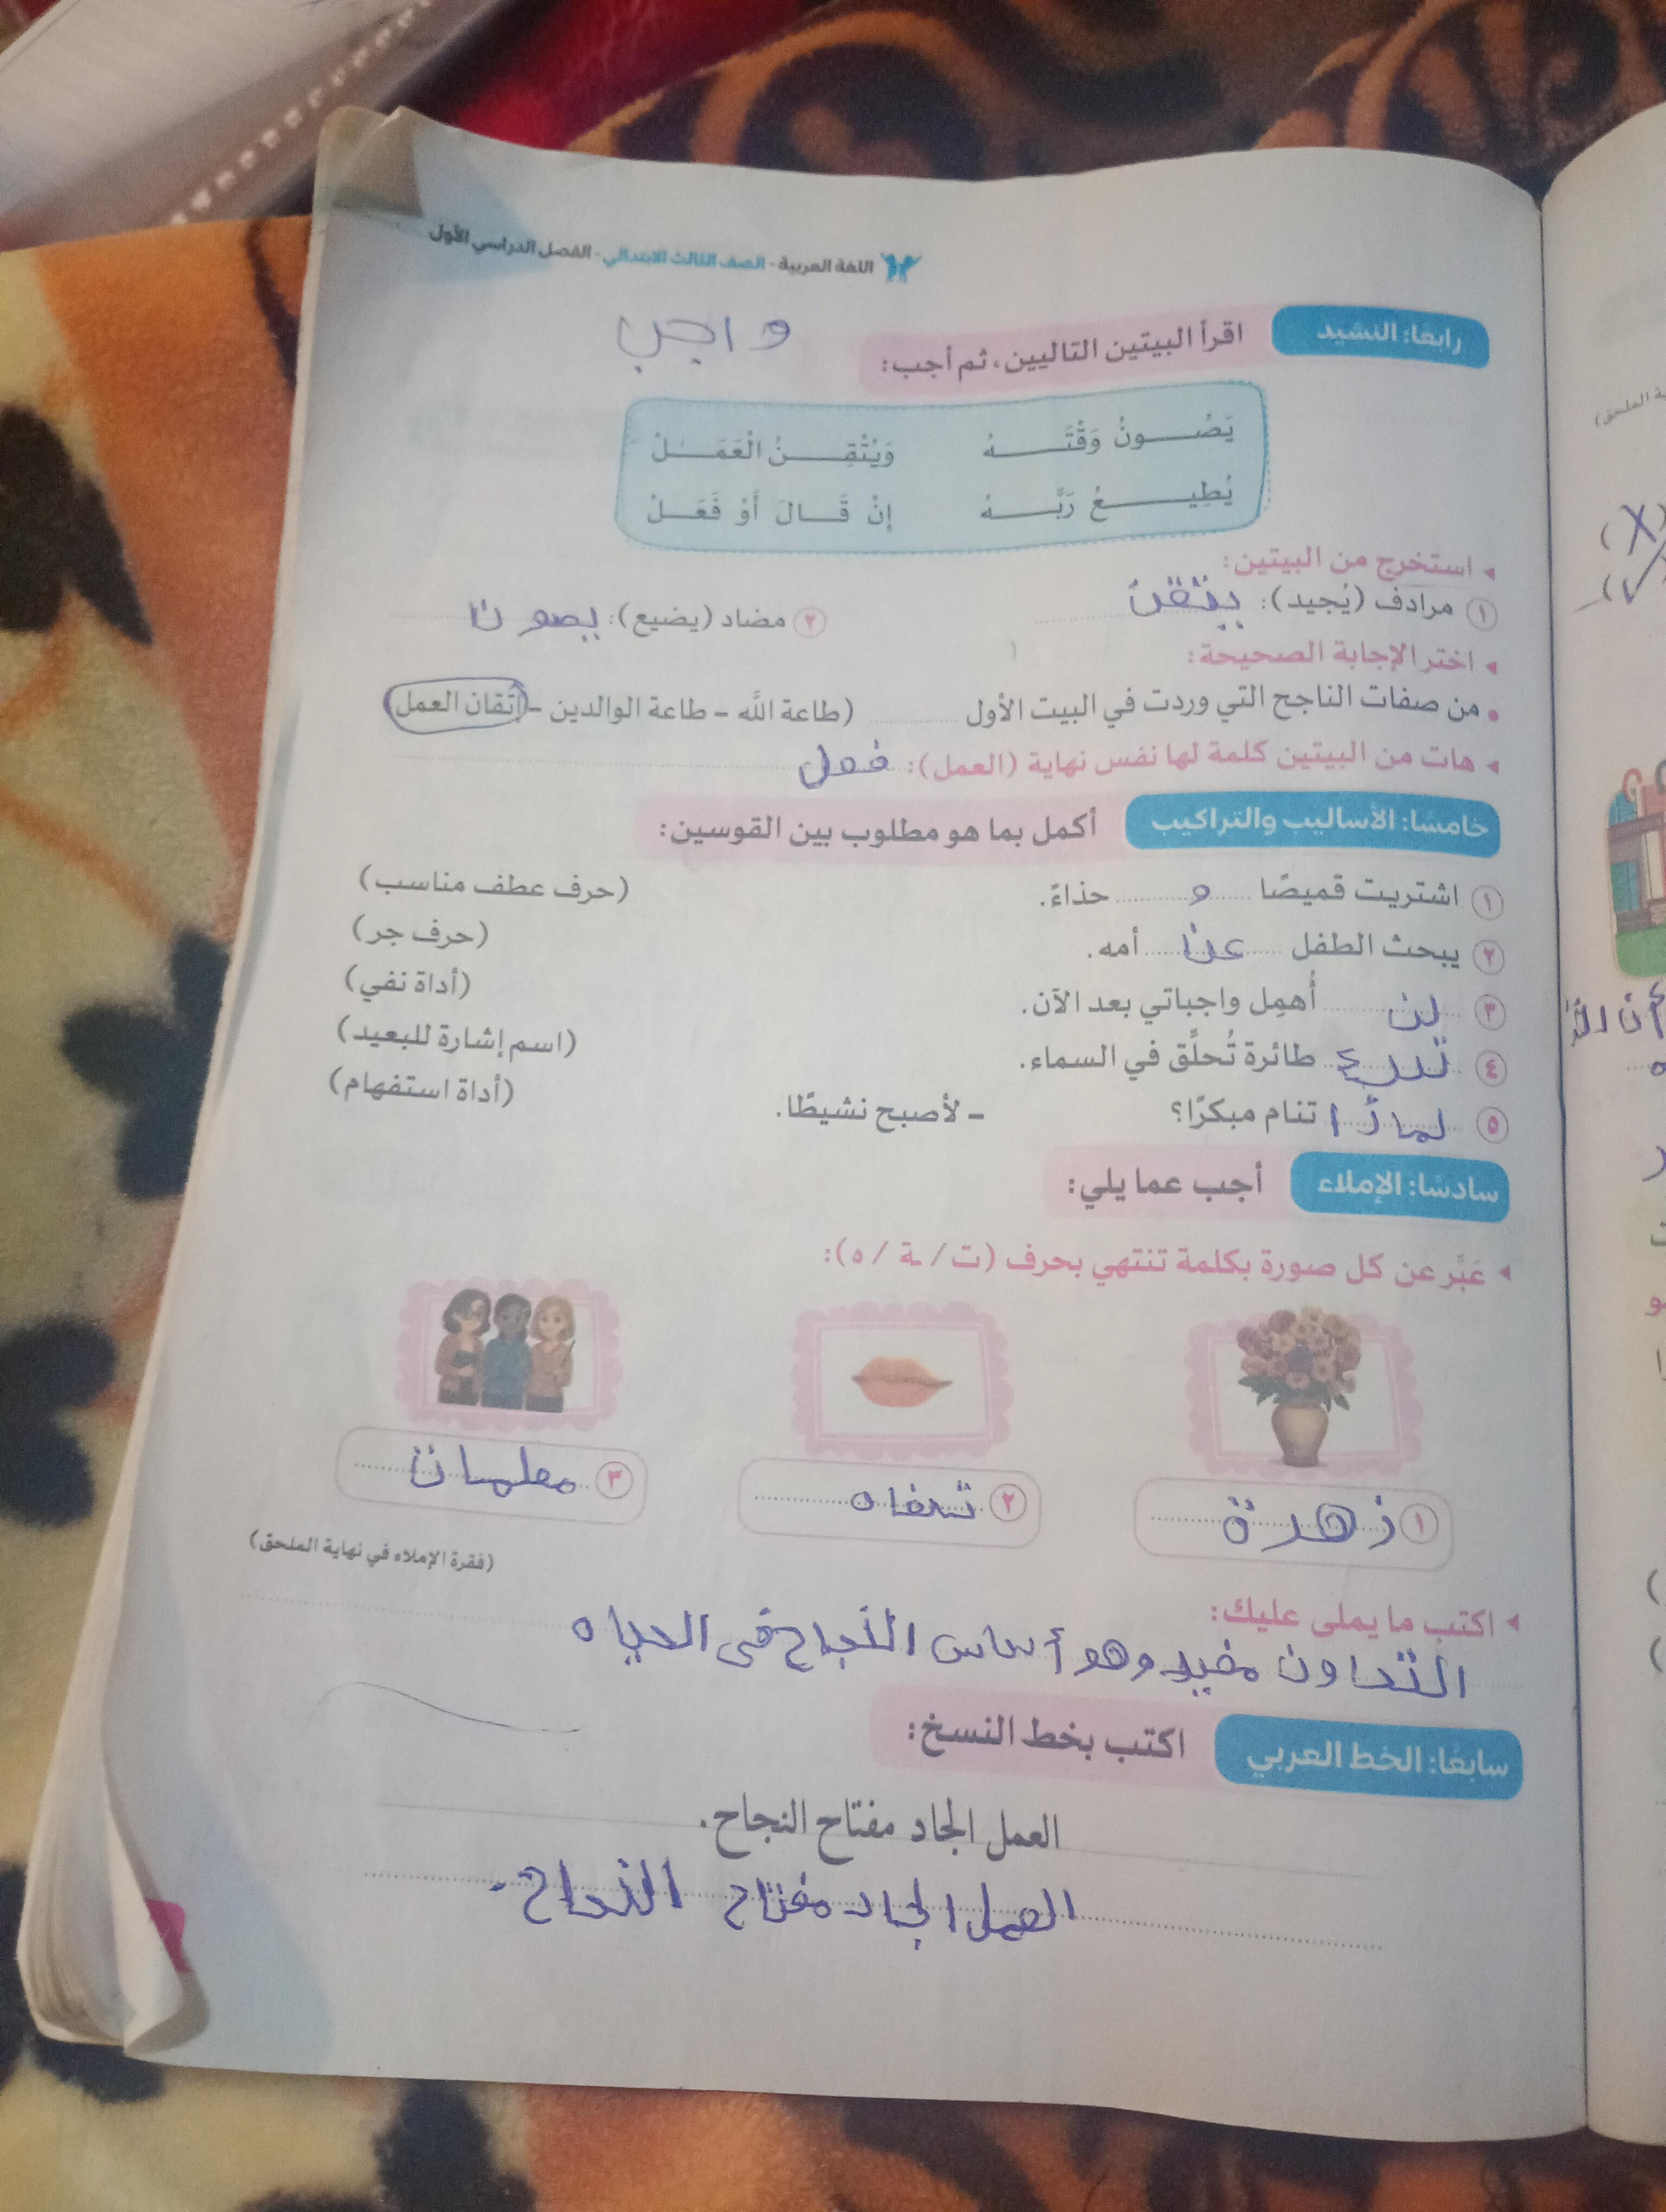 اللغة العربية - الصف الثالث الابتدائي - الفصل الدراسي الأول
واجب
رابعًا: النشيد اقرأ البيتين التاليين، ثم أجب:
يَصُــــونُ وَقْتَــــهُ وَيُتْقِــــنُ الْعَمَــــلْ
يُطِيــــعُ رَبَّــــهُ إِنْ قَــــالَ أَوْ فَعَــــلْ
◂ استخرج من البيتين:
١ مرادف (يُجيد): يتقن ٢ مضاد (يضيع): يصون
◂ اختر الإجابة الصحيحة:
• من صفات الناجح التي وردت في البيت الأول ........ (طاعة الله – طاعة الوالدين – إتقان العمل)
◂ هات من البيتين كلمة لها نفس نهاية (العمل): فعل
خامسًا: الأساليب والتراكيب أكمل بما هو مطلوب بين القوسين:
١ اشتريت قميصًا و حذاءً. (حرف عطف مناسب)
٢ يبحث الطفل عن أمه. (حرف جر)
٣ لن أُهمِل واجباتي بعد الآن. (أداة نفي)
٤ طائرة تُحلِّق في السماء. (اسم إشارة للبعيد)
٥ لماذا تنام مبكرًا؟ – لأصبح نشيطًا. (أداة استفهام)
سادسًا: الإملاء أجب عما يلي:
◂ عَبِّر عن كل صورة بكلمة تنتهي بحرف (ت / ـة / ه):
١ زهرة ٢ شفاه ٣ معلمات
(فقرة الإملاء في نهاية الملحق)
◂ اكتب ما يملى عليك:
التعاون مفيد وهو أساس النجاح فى الحياه
سابعًا: الخط العربي اكتب بخط النسخ:
العمل الجاد مفتاح النجاح.
العمل الجاد مفتاح النجاح.